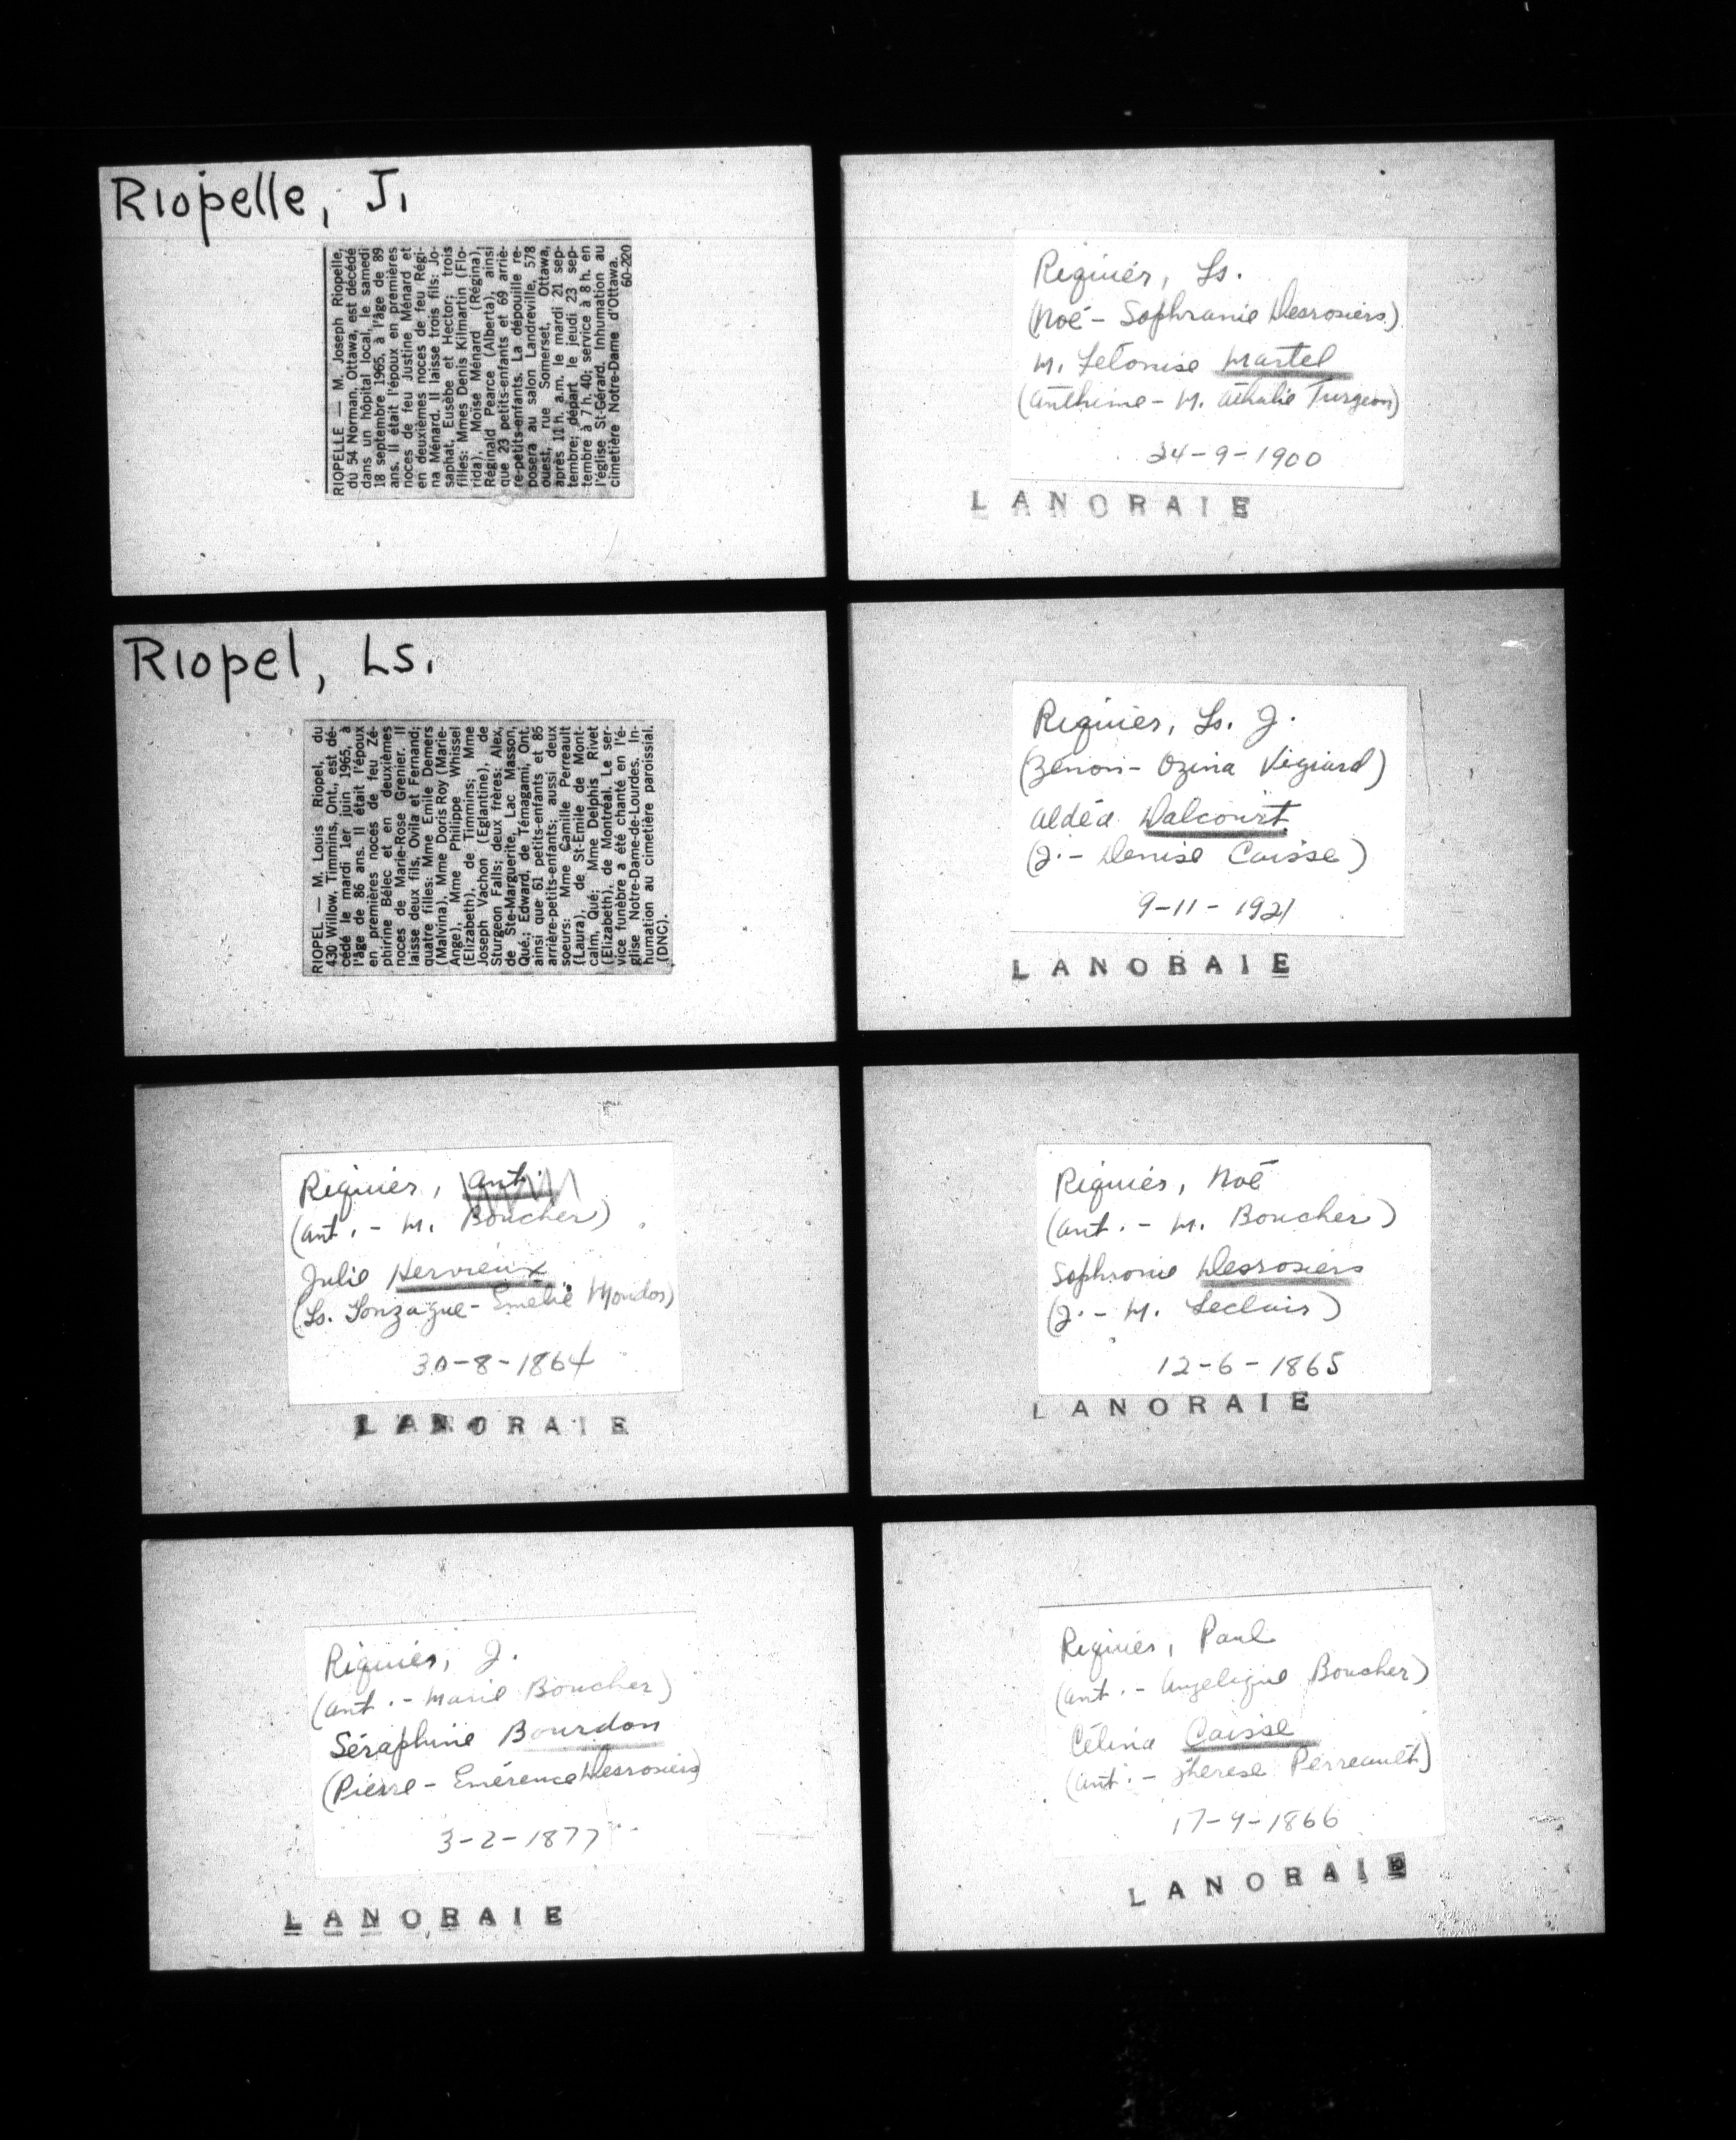 Riopelle, J.
RIOPELLE — M. Joseph Riopelle,
du 54 Norman, Ottawa, est décédé
dans un hôpital local, le samedi
18 septembre 1965, à l'âge de 89
ans. Il était l'époux en premières
noces de feu Justine Ménard et
en deuxièmes noces de feu Régi-
na Ménard. Il laisse trois fils: Jo-
saphat, Eusèbe et Hector; trois
filles: Mmes Denis Kilmartin (Flo-
rida), Moïse Ménard (Régina),
Réginald Pearce (Alberta), ainsi
que 23 petits-enfants et 69 arriè-
re-petits-enfants. La dépouille re-
posera au salon Landreville, 578
ouest, rue Somerset, Ottawa,
après 11 h. a.m. le mardi 21 sep-
tembre; départ, le jeudi 23 sep-
tembre à 7 h. 40; service à 8 h. en
l'église St-Gérard. Inhumation au
cimetière Notre-Dame d'Ottawa.
60-220
Riopel, Ls.
RIOPEL — M. Louis Riopel, du
430 Willow, Timmins, Ont., est dé-
cédé le mardi 1er juin 1965, à
l'âge de 86 ans. Il était l'époux
en premières noces de feu Zé-
phirine Bélec et en deuxièmes
noces de Marie-Rose Grenier. Il
laisse deux fils, Ovila et Fernand;
quatre filles: Mme Emile Demers
(Malvina), Mme Doris Roy (Marie-
Ange), Mme Philippe Whissel
(Elizabeth), de Timmins; Mme
Joseph Vachon (Eglantine), de
Sturgeon Falls; deux frères: Alex,
de Ste-Marguerite, Lac Masson,
Qué.; Edward, de Témagami, Ont.
ainsi que 61 petits-enfants et 85
arrière-petits-enfants; aussi deux
soeurs: Mme Camille Perreault
(Laura), de St-Emile de Mont-
calm, Qué; Mme Delphis Rivet
(Elizabeth), de Montréal. Le ser-
vice funèbre a été chanté en l'é-
glise Notre-Dame-de-Lourdes. In-
humation au cimetière paroissial.
(DNC).
Riquier, Ant.
(Ant. - M. Boucher)
Julie Hervieux
(Ls. Gonzague - Emelie Mondos)
30-8-1864
LANORAIE
Riquier, J.
(Ant. - Marie Boucher)
Séraphine Bourdon
(Pierre - Emérence Desrosiers)
3-2-1877
LANORAIE
Riquier, Ls.
(Noé - Sophranie Desrosiers)
M. Letonise Martel
(Anthime - M. Athalie Turgeon)
24-9-1900
LANORAIE
Riquier, Ls. J.
(Zénon - Ozina Végiard)
Aldéa Dalcourt
(J. - Denise Caisse)
9-11-1921
LANORAIE
Riquier, Noé
(Ant. - M. Boucher)
Sophronie Desrosiers
(J. - M. Leclair)
12-6-1865
LANORAIE
Riquier, Paul
(Ant. - Angelique Boucher)
Célina Caisse
(Ant. - Therese Perreault)
17-9-1866
LANORAIE